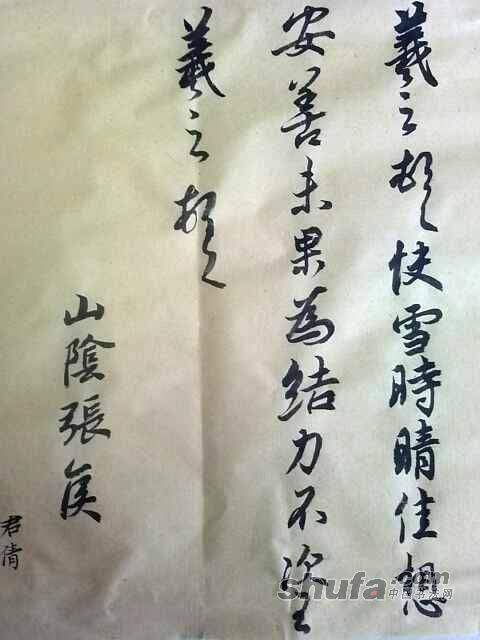 羲之頓首快雪時晴佳想
安善未果為結力不次王
羲之頓首
山陰張侯
君倩
shufa.com
中国书法网